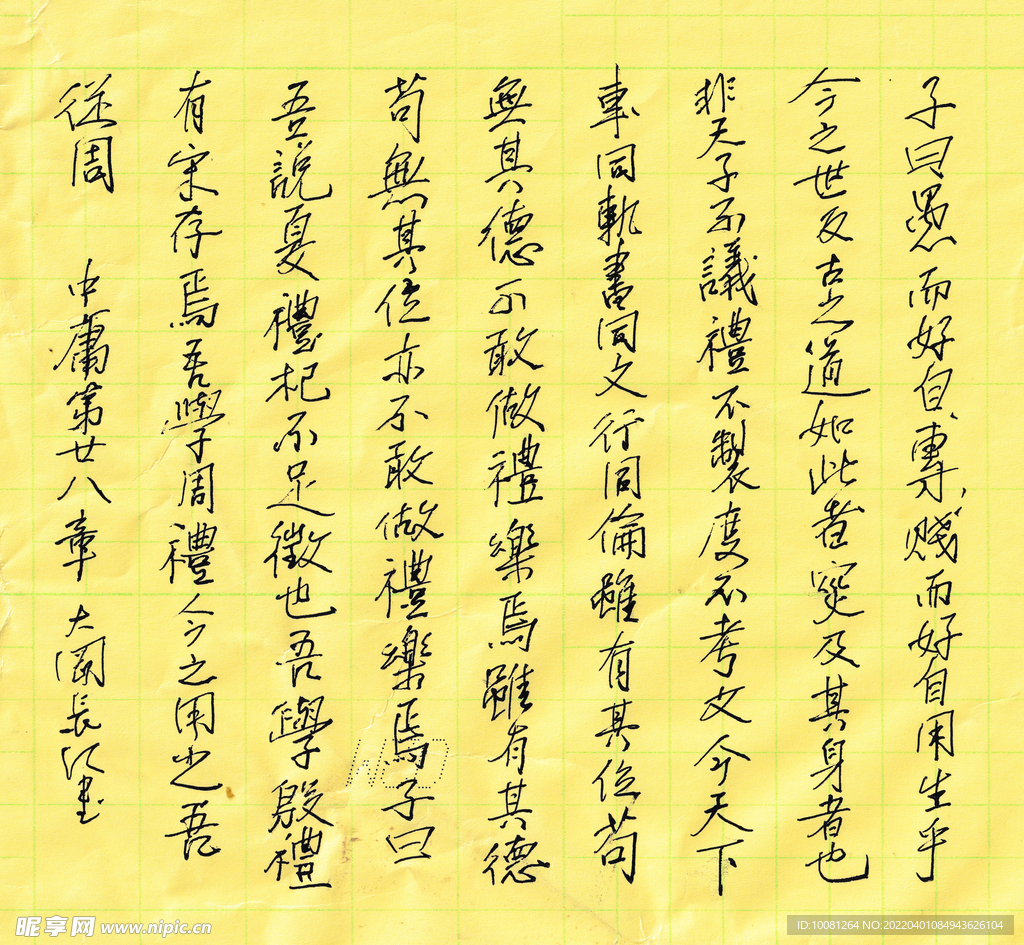 子曰愚而好自專賤而好自用生乎
今之世反古之道如此者災及其身者也
非天子不議禮不製度不考文今天下
車同軌書同文行同倫雖有其位苟
無其德不敢做禮樂焉雖有其德
苟無其位亦不敢做禮樂焉子曰
吾說夏禮杞不足徵也吾學殷禮
有宋存焉吾學周禮今之用之吾
從周 中庸第廿八章 大閑長江書
昵享网 www.nipic.cn
ID:10081264 NO:20220401084943626104